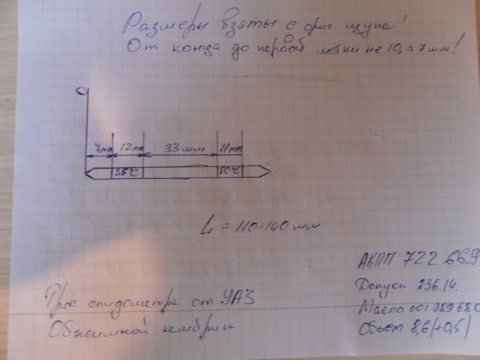 Размеры взяты с ориг щупа!
От конца до первой метки не 10, а 7 мм!
7mm 12mm 33мм 11mm
25°C 80°C
L = 110-140 мм
АКПП 722.669
Допуск 236.14
Масло 001 989 680
Объём 8,6(+0,5)
Трос спидометра от УАЗ
Обжимной кембрик.